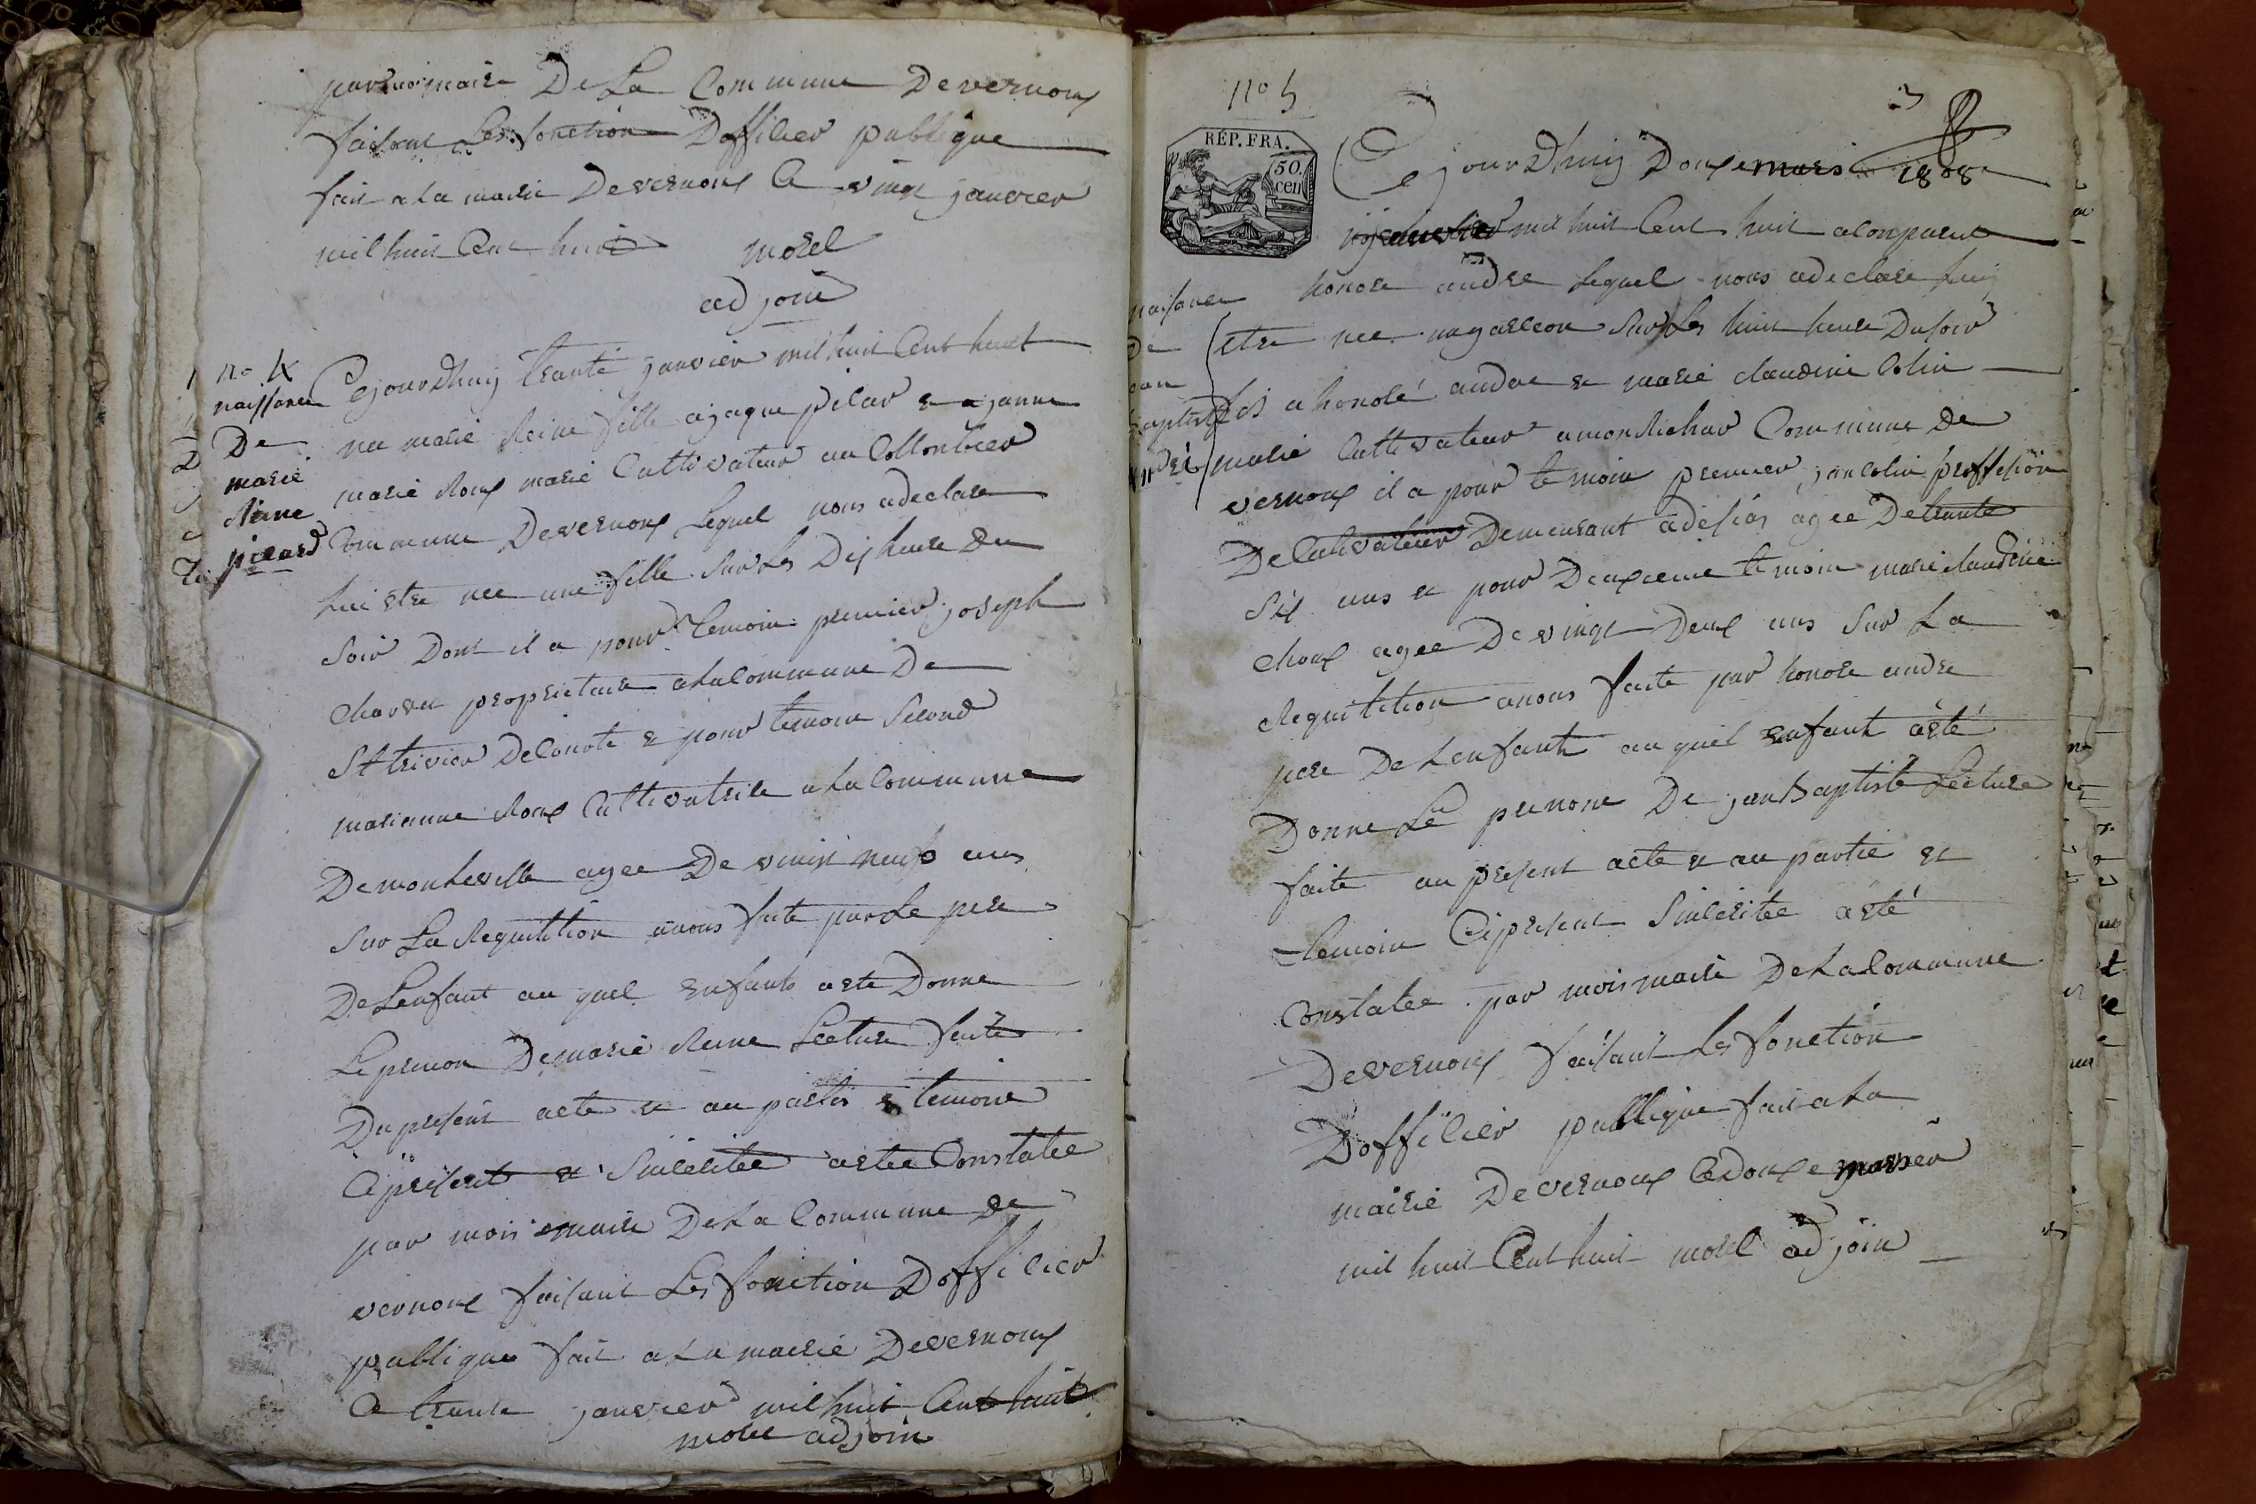 par moi maire De La Commune De vernoux
faisant Les fonction Dofficier publique
fait a La mairie De vernoux Ce vingt janvier
mil huit Cent huit morel
adjoin
no 4
naissance
De
marie
Reine
pilard
Cejourdhuij trante janvier mil huit Cent huit
nee marie Reine fille a jaque pilar & a janne
marie Roux marié Cultivateur au Collonbier
Commune De vernoux Lequel nous a declare
Lui etre nee une fille Sur Les Dix heure Du
Soir Dont il a pour temoin premier joseph
Charvet proprietaire a La Commune De
St trivier De Courte & pour temoin Second
marianne Roux Cultivatrice a La Commune
De montcevelle agee De vinjt neuf ans
Sur La Requitition a nous faite par Le pere
De Lenfant au quel Enfant a ete Donne
Le prenon De marie Reine Lecture faite
Du present acte & au partis & temoin
Ci present & Sincerite a ete Constatee
par moi maire De La Commune De
vernoux faisant Les fonction Dofficier
publique fait a La mairie De vernoux
Ce trante janvier mil huit Cent huit
morel adjoin
no 5
3
RÉP. FRA.
50.
cen
naisance
De
jean
baptiste
andré
Ce jourdhuij Douze mars 1808
janvier mil huit Cent huit a Conparu
honore andre Lequel nous a declare Luij
etre nee un garcon Sur Les huit heure Du soir
fis a honoré andre & marie claudine Colin
marié Cultivateur a monRichar Commune De
vernoux il a pour temoin premier jan colin proffesion
De Cultivateur Demeurant a desias agee De trante
Six ans & pour Deuxieme temoin marie claudine
Choux agee De vingt Deux ans Sur La
Requitition a nous faite par honore andre
pere De Lenfant au quel Enfant a été
Donne Le prenom De jan Baptiste Lecture
faite au present acte & au partie &
temoin Ci present Sincerite a eté
Constatee par moi maire De La Commune
De vernoux faisant Les fonction
Dofficier publique fait a La
mairie De vernoux Ce Douze mars
mil huit Cent huit morel adjoin